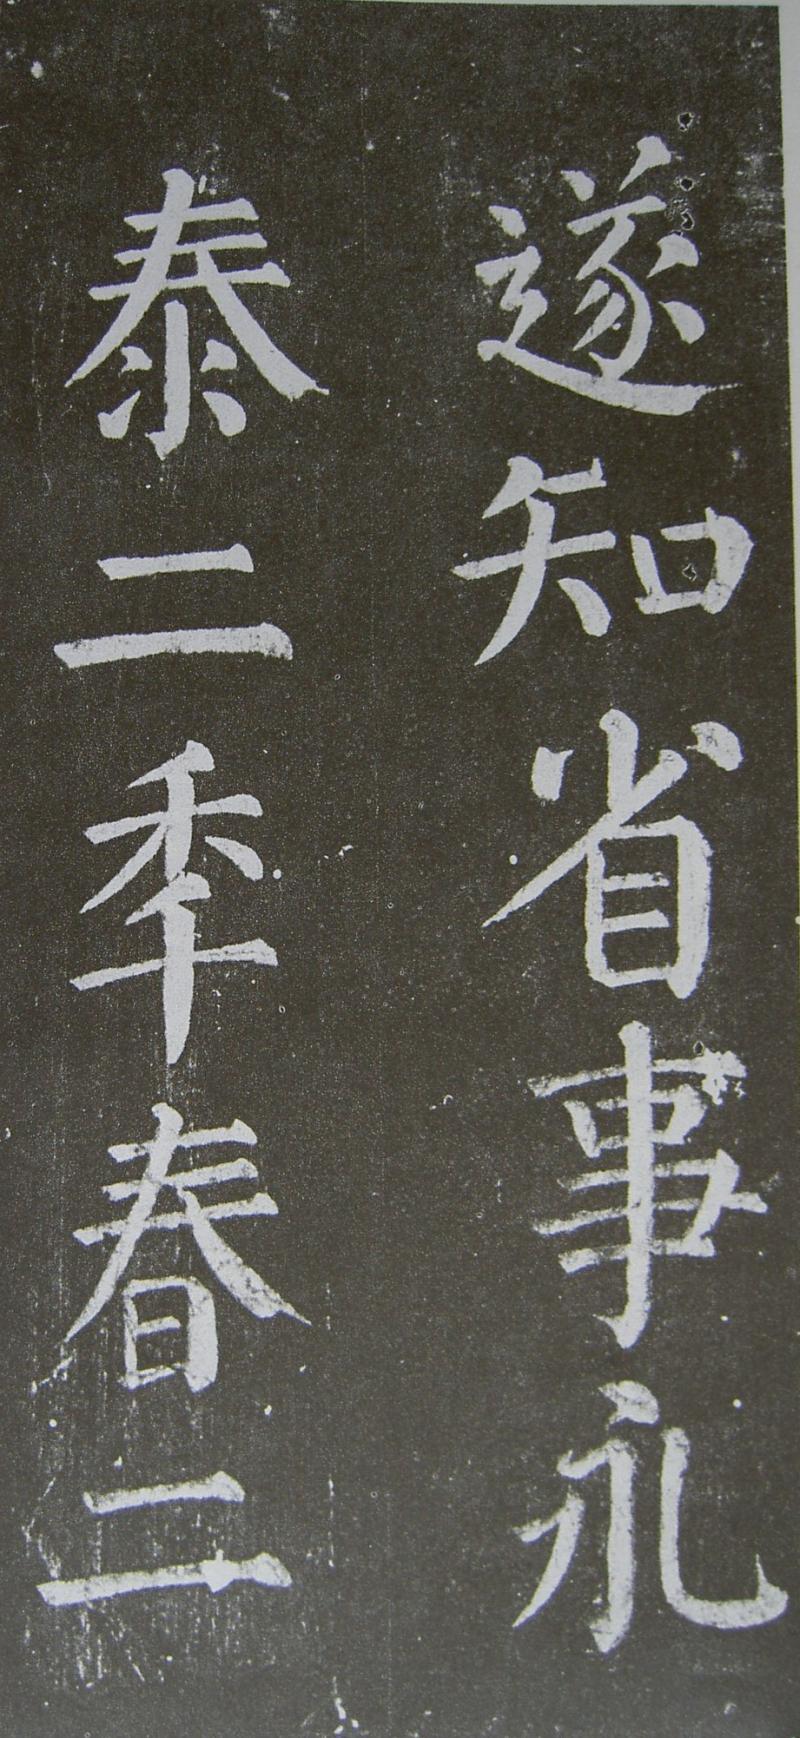 遂知省事永
泰二秊春二